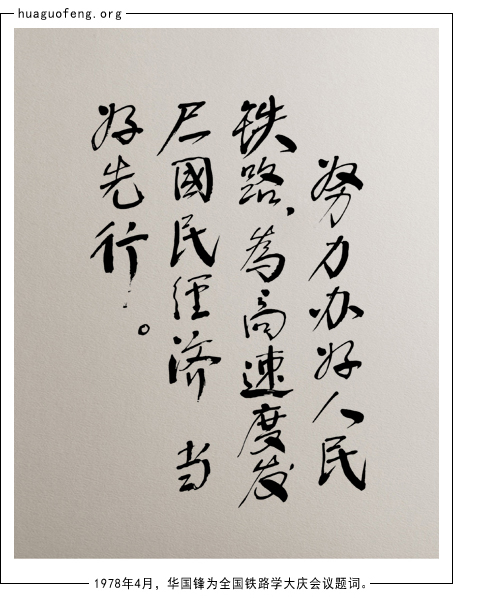 huaguofeng.org
努力办好人民
铁路，為高速度发
展國民經济 当
好先行。
1978年4月，华国锋为全国铁路学大庆会议题词。